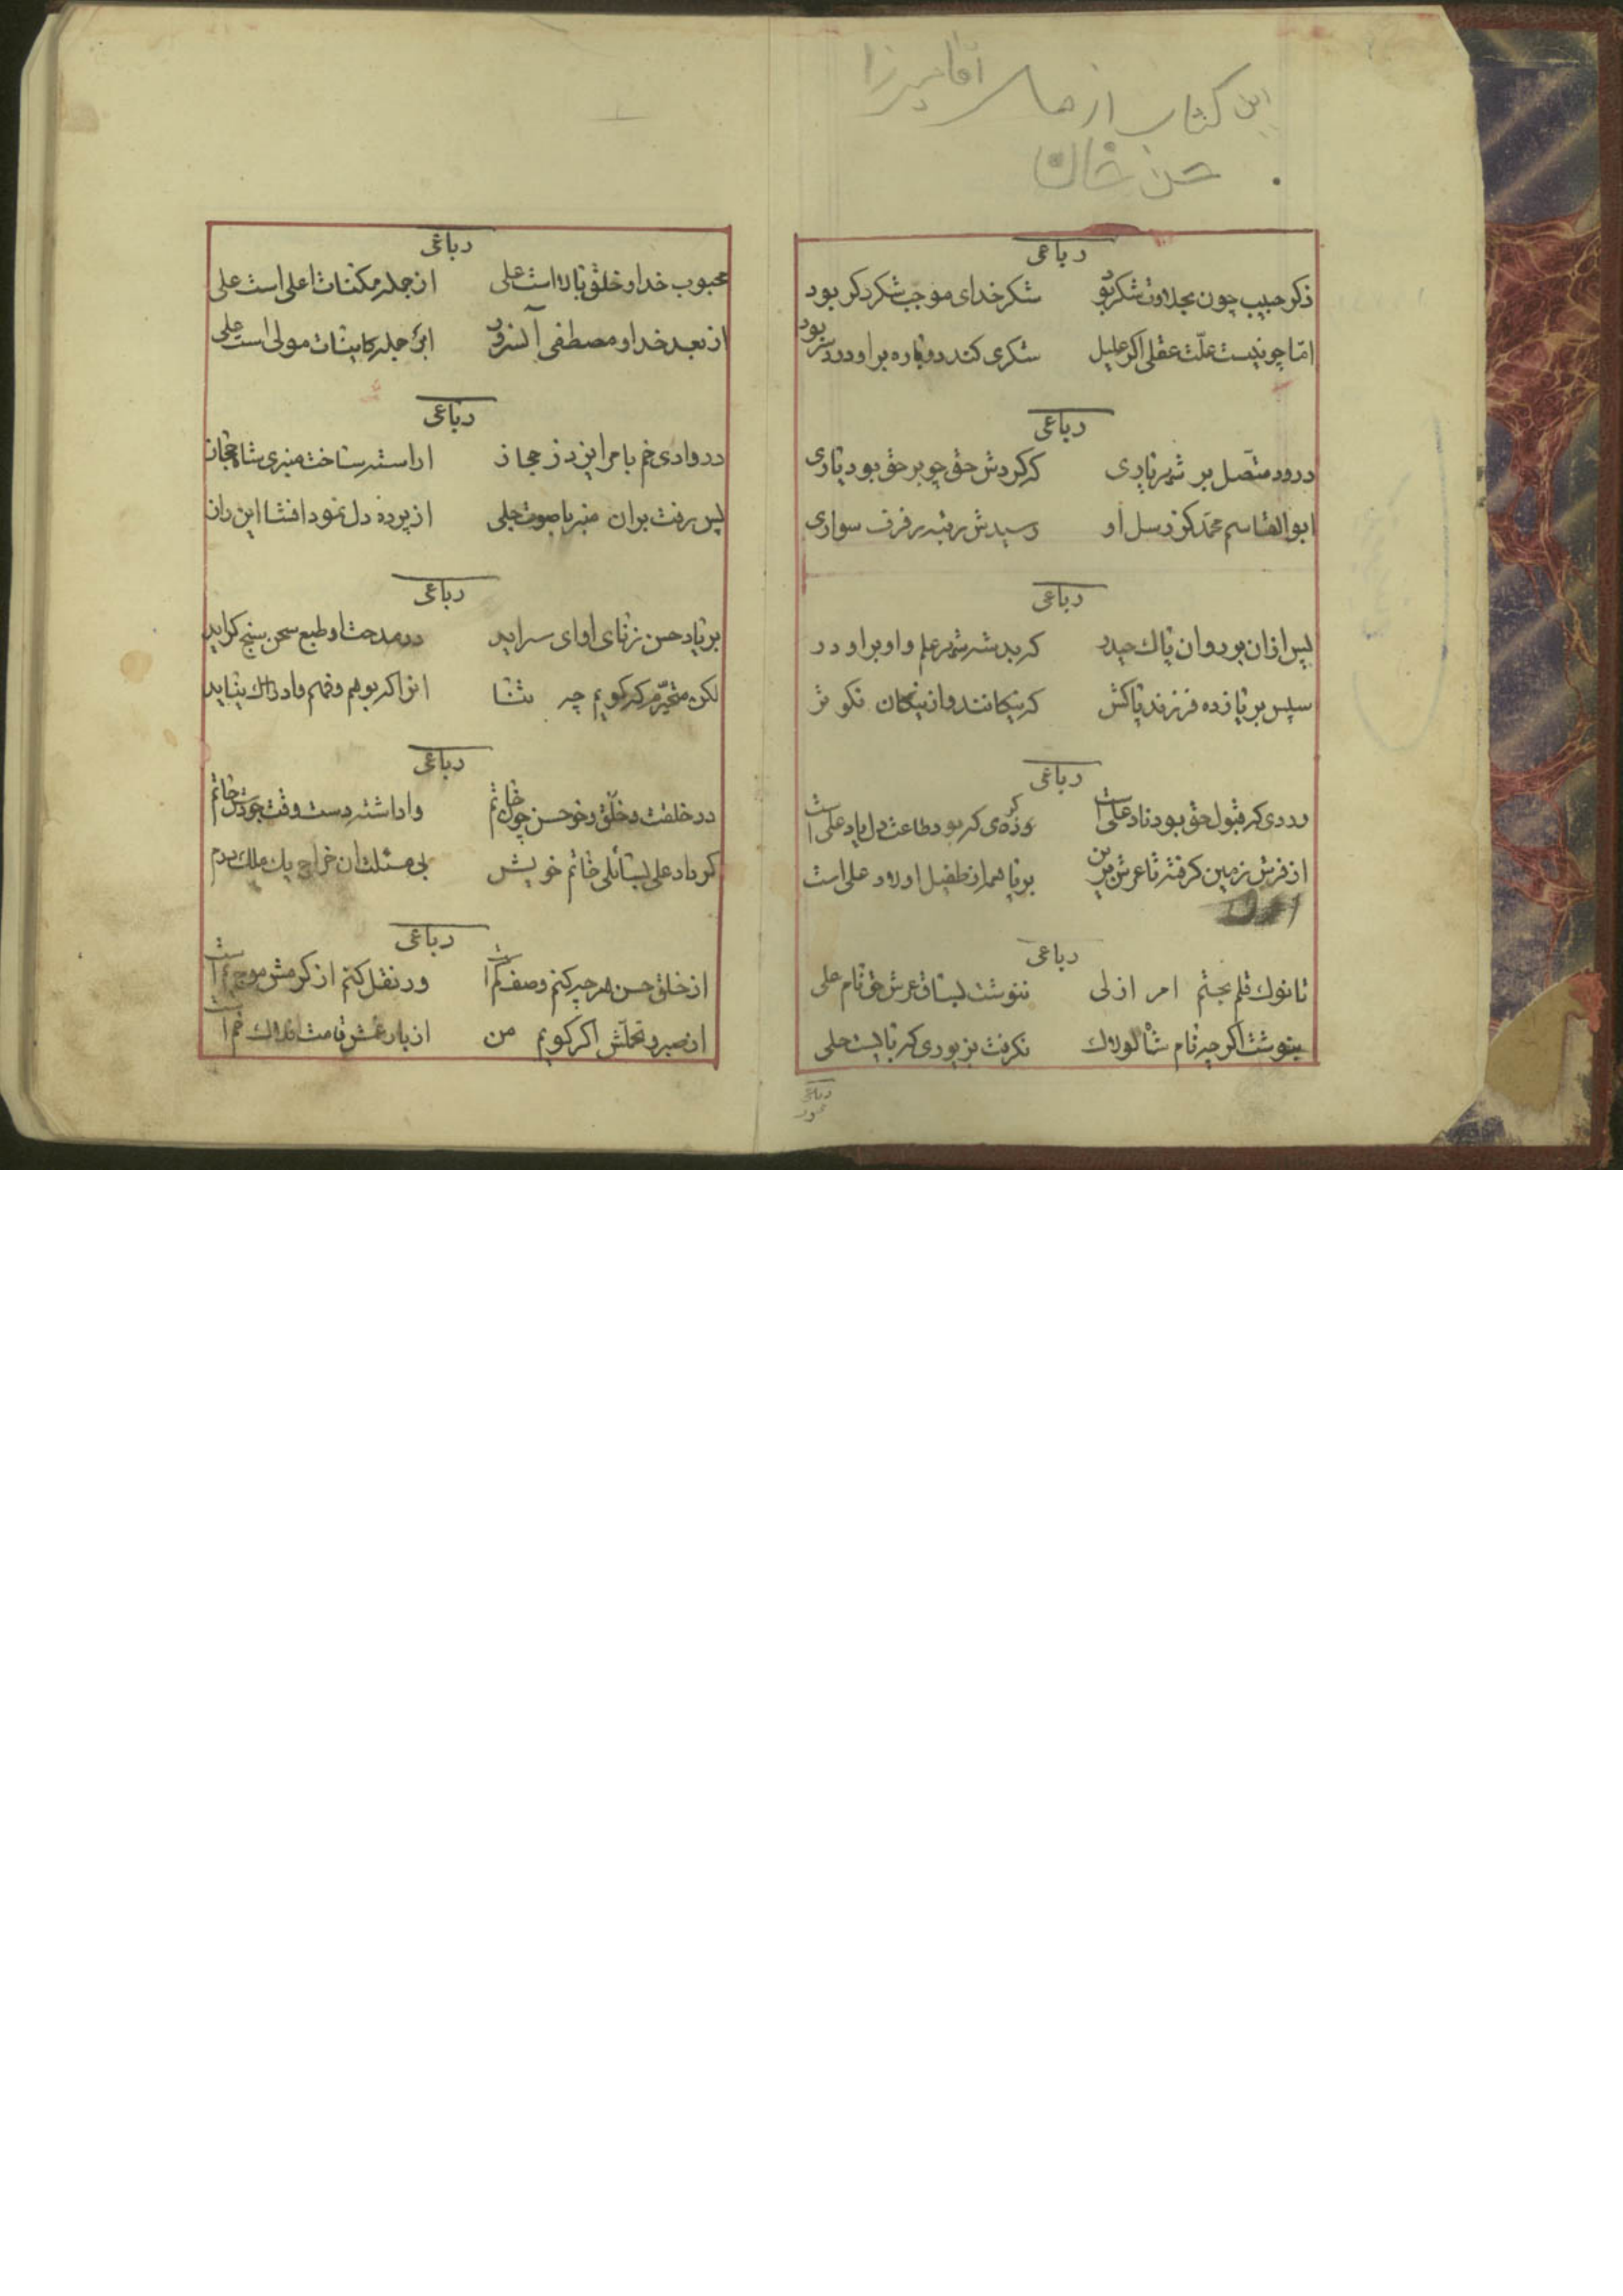 این کتاب از مال آقا میرزا
حسن خان
رباعی
ذکر حبیب چون بحلاوت شکر بود شکر خدای موجب شکر دکر بود
امّا چو نیست علّت عقلی اکر علیل شکری کند دوباره بر او درد سر بود
رباعی
درود متّصل بر شهریاری که کردش حق چو بر حق بود یاری
ابوالقاسم محمّد کز رسل او رسیدش رتبه رفرف سواری
رباعی
پس از ان بر روان پاک حیدر که بد شه شهر علم و او بر او در
سپس بر یازده فرزند پاکش که نیکانند و از نیکان نکو تر
رباعی
وردی که قبول حق بود ناد علی است که بود طاعت دل یاد علی است
از فرش زمین کرفته تا عرش برین بر پا همه از طفیل اولاد علی است
رباعی
تا نوک قلم بحتم امر ازلی ننوشت بساق عرش حق نام علی
بنوشت اکر چه نام شاه لولاک نکرفت بزیوری که بایست حلی
رباعی
رباعی
محبوب خدا و خلق بالا است علی از جمله مکنات اعلی است علی
از بعد خدا و مصطفی آنسرور جمله کاینات مولی است علی
رباعی
در وادی خم بامر ایزد ز حجاز اراسته ساخت منبری شاه حجاز
پس رفت بران منبر با صوت جلی از پرده دل نمود افشا این راز
رباعی
بر یاد حسن زنای اوای سراید در مدحت او طبع سخن سنج کراید
لکن متحیّرم که کویم چه ثنا انرا که بوهم و فهم و ادراک نیاید
رباعی
در خلقت و خلق و خو حسن چون خاتم واداشته دست وقت جودش خاتم
کر داد علی بسائلی خاتم خویش بی مسئلت ان خراج یک ملک درم
رباعی
از خلق حسن هر چه کنم وصف کم است ور نقل کنم از کرمش موج یم است
از صبر و تحملّش اکر کویم من از بار غمش قامت افلاک خم است